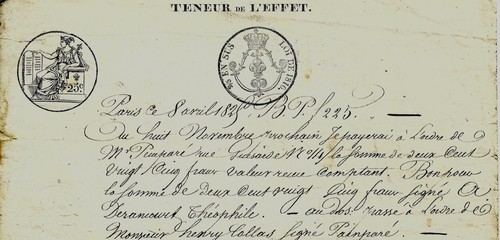 TENEUR DE L'EFFET.
25c
EN SUS LOI DE 1816.
Paris ce 8 avril 182 B. P. f 225. —
Du huit Novembre prochain Je payerai à l'ordre de
Mr Painparé rue No 14 la Somme de deux Cent
Vingt Cinq francs valeur reçue Comptant. Bon pour
la Somme de deux Cent vingt Cinq francs signé A
Derancourt Théophile. — au dos passé à l'ordre de
Monsieur henry Collas signé Painparé.